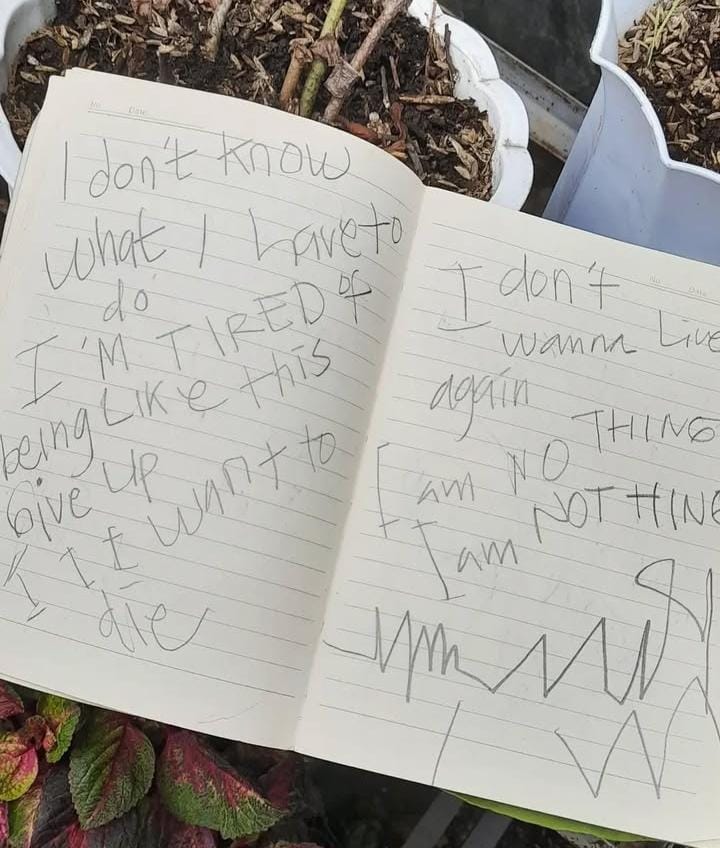 No. Date
I don't know
what I have to
do
I'M TIRED OF
being LIKE this
Give up
I I I want to
die
No. Date
I don't
wanna Live
again
I am NO THING
I am NOTHING